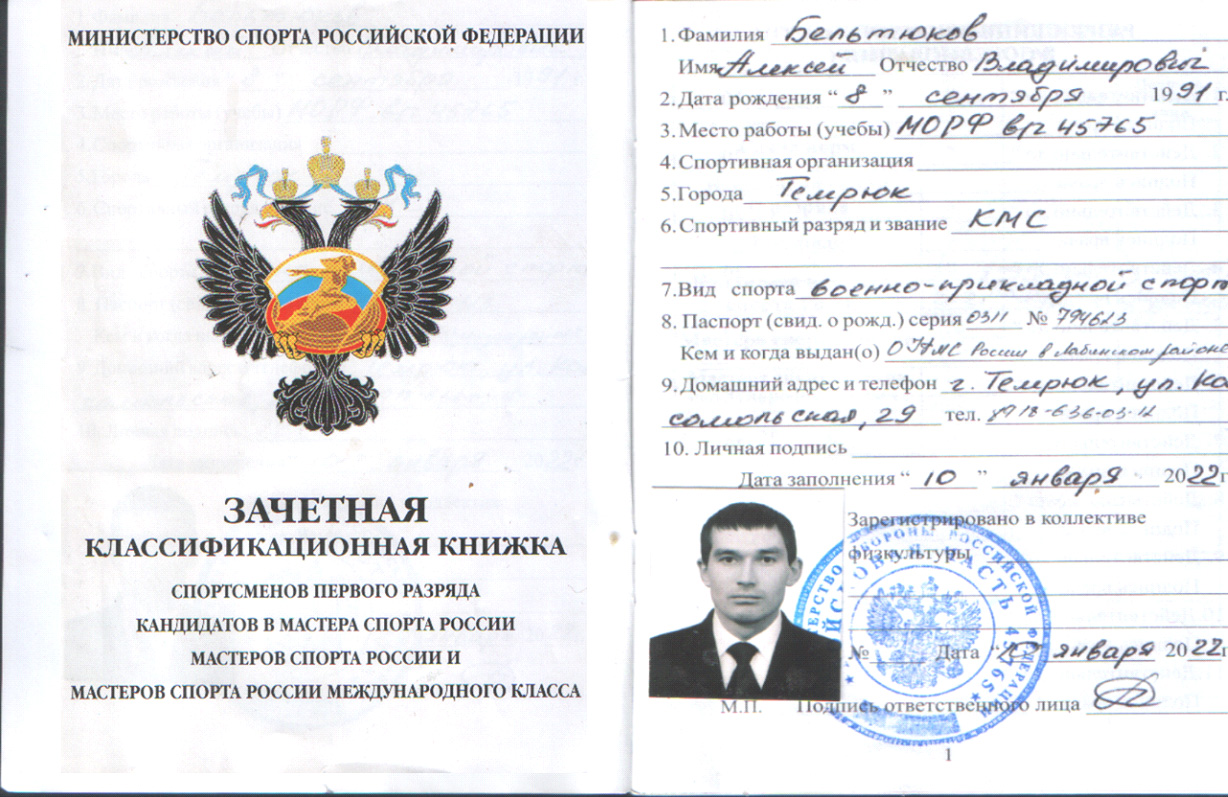 МИНИСТЕРСТВО СПОРТА РОССИЙСКОЙ ФЕДЕРАЦИИ
ЗАЧЕТНАЯ
КЛАССИФИКАЦИОННАЯ КНИЖКА
СПОРТСМЕНОВ ПЕРВОГО РАЗРЯДА
КАНДИДАТОВ В МАСТЕРА СПОРТА РОССИИ
МАСТЕРОВ СПОРТА РОССИИ И
МАСТЕРОВ СПОРТА РОССИИ МЕЖДУНАРОДНОГО КЛАССА
1. Фамилия Бельтюков
Имя Алексей Отчество Владимирович
2. Дата рождения “ 8 ” сентября 1991 г.
3. Место работы (учебы) МОРФ в/г 45765
4. Спортивная организация
5.Города Темрюк
6. Спортивный разряд и звание КМС
7.Вид спорта военно-прикладной спорт
8. Паспорт (свид. о рожд.) серия 0311 № 794613
Кем и когда выдан(о) ОУФМС России в Лабинском районе
9. Домашний адрес и телефон г. Темрюк, ул. Ко
сомольская, 29 тел. 8918-636-03-12
10. Личная подпись
Дата заполнения “ 10 ” января 2022г
Зарегистрировано в коллективе
физкультуры
№ Дата “ января 2022г
М.П. Подпись ответственного лица
1